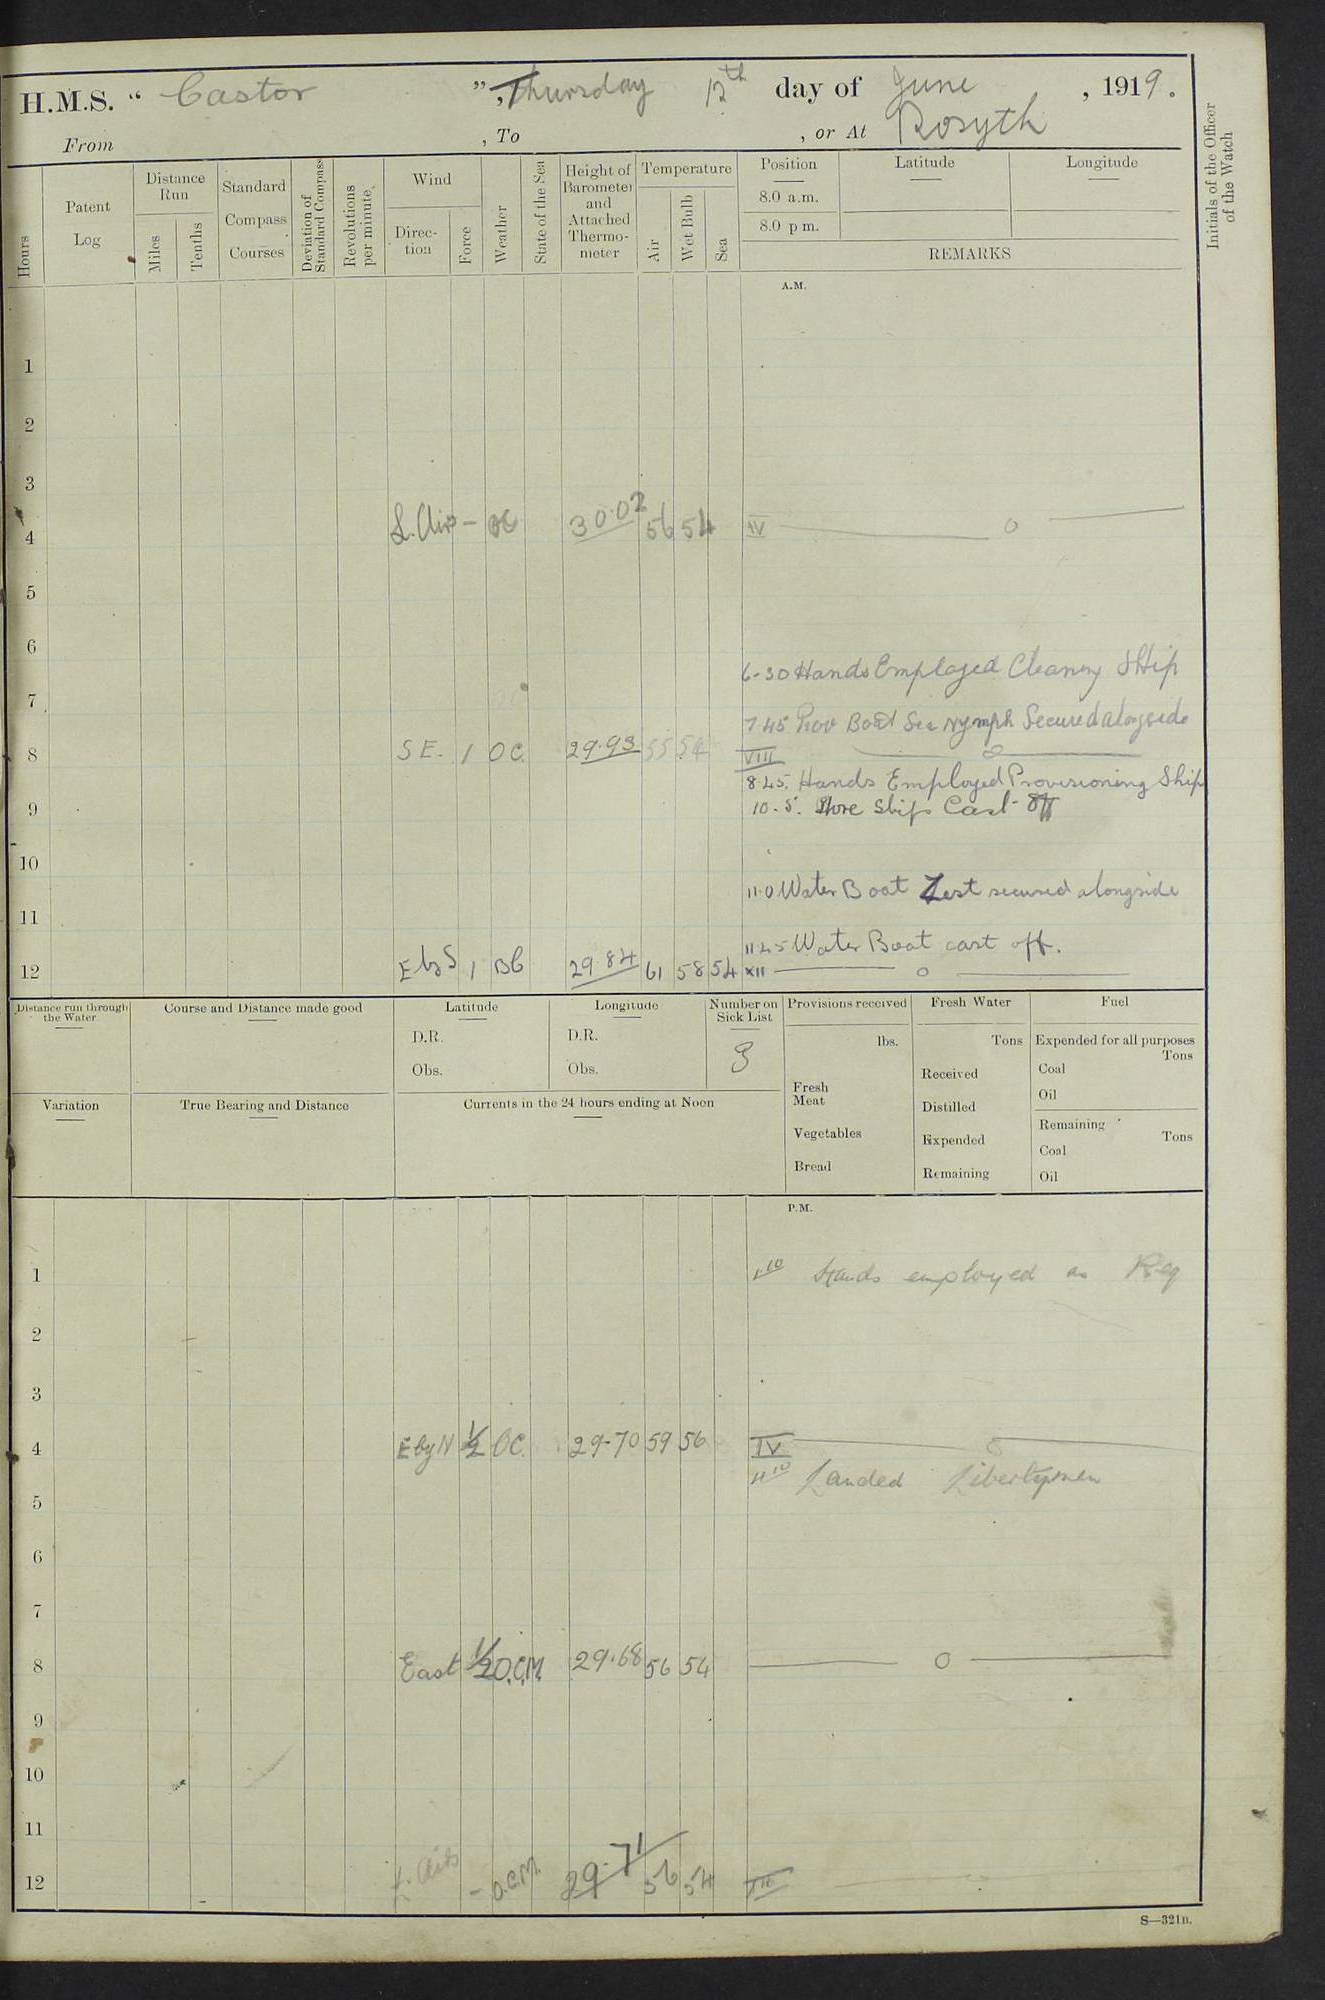 H.M.S. “ Castor ”, Thursday 12th day of June , 1919.
From , To , or At Rosyth
Initials of the Officer of the Watch
Hours
Patent Log
Distance Run
Miles
Tenths
Standard Compass Courses
Deviation of Standard Compass
Revolutions per minute.
Wind
Direction
Force
Weather
State of the Sea
Height of Barometer and Attached Thermometer
Temperature
Air
Wet Bulb
Sea
Position Latitude Longitude
8.0 a.m.
8.0 p m.
REMARKS
A.M.
1
2
3
4 L. Airs - OC 30.02 56 54 IV
5
6
6-30 Hands Employed Cleaning Ship
7
7.45 Prov Boat Sea Nymph Secured alongside
8 S E. 1 OC 29.93 55 54 VIII
8.45. Hands Employed Provisioning Ship
9
10.5. Store Ships Cast off
10
11.0 Water Boat Zest secured alongside
11
11.45 Water Boat cast off.
12 E by S 1 BC 29.84 61 58 54 XII
Distance run through the Water
Course and Distance made good
Latitude
D.R.
Obs.
Longitude
D.R.
Obs.
Number on Sick List
3
Variation
True Bearing and Distance
Currents in the 24 hours ending at Noon
Provisions received
lbs.
Fresh Meat
Vegetables
Bread
Fresh Water
Tons
Received
Distilled
Expended
Remaining
Fuel
Expended for all purposes
Tons
Coal
Oil
Remaining
Tons
Coal
Oil
P.M.
1 1.10 Hands employed as Req
2
3
4 E by N 1/2 OC. 29.70 59 56 IV
4.10 Landed Libertymen
5
6
7
8 East 1/2 O.C.M. 29.68 56 54
9
10
11
12 L. Airs - O.C.M. 29.71 56 54
S—321B.